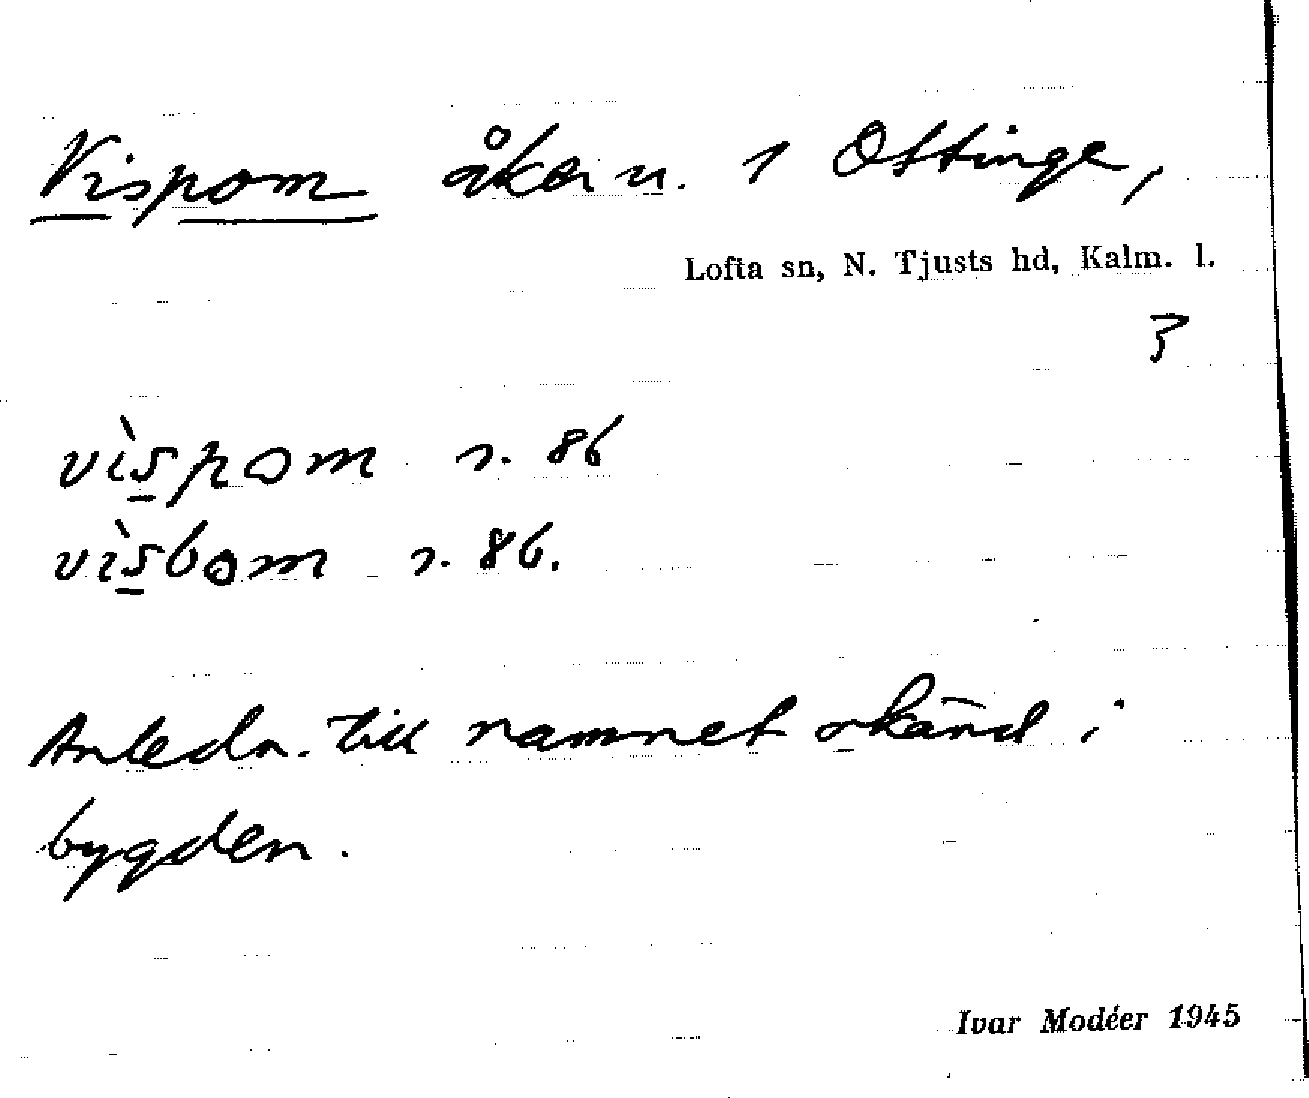 Vispom åker n. 1 Ottinge,
Lofta sn, N. Tjusts hd, Kalm. l.
3
vìspom s. 86
vìsbom s. 86.
Anledn. till namnet okänd i
bygden.
Ivar Modéer 1945